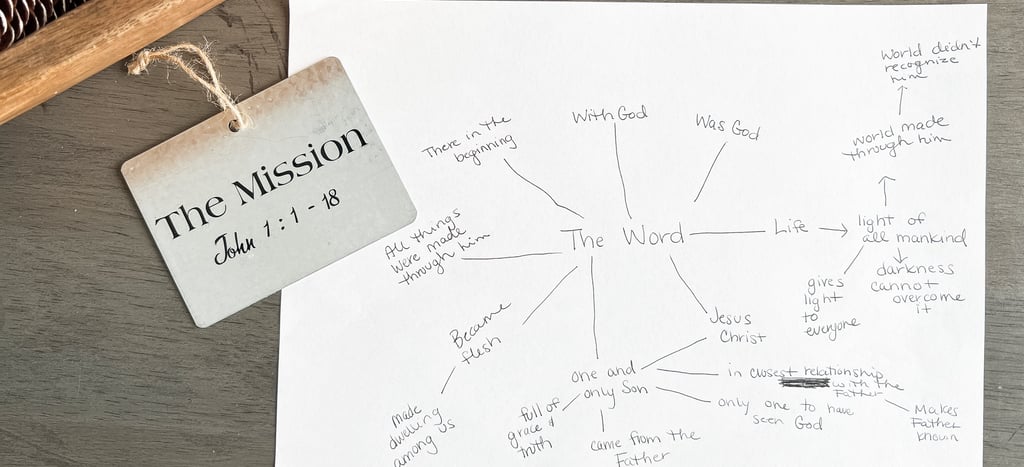 The Mission
John 1:1-18
There in the
beginning
With God
Was God
World didn't
recognize
him
world made
through him
All things
were made
through him
The Word
Life
light of
all mankind
darkness
cannot
overcome
it
gives
light
to
everyone
Became
flesh
made
dwelling
among us
Jesus
Christ
one and
only Son
in closest relationship
with the
Father
Makes
Father
known
only one to have
seen God
full of
grace &
truth
came from the
Father